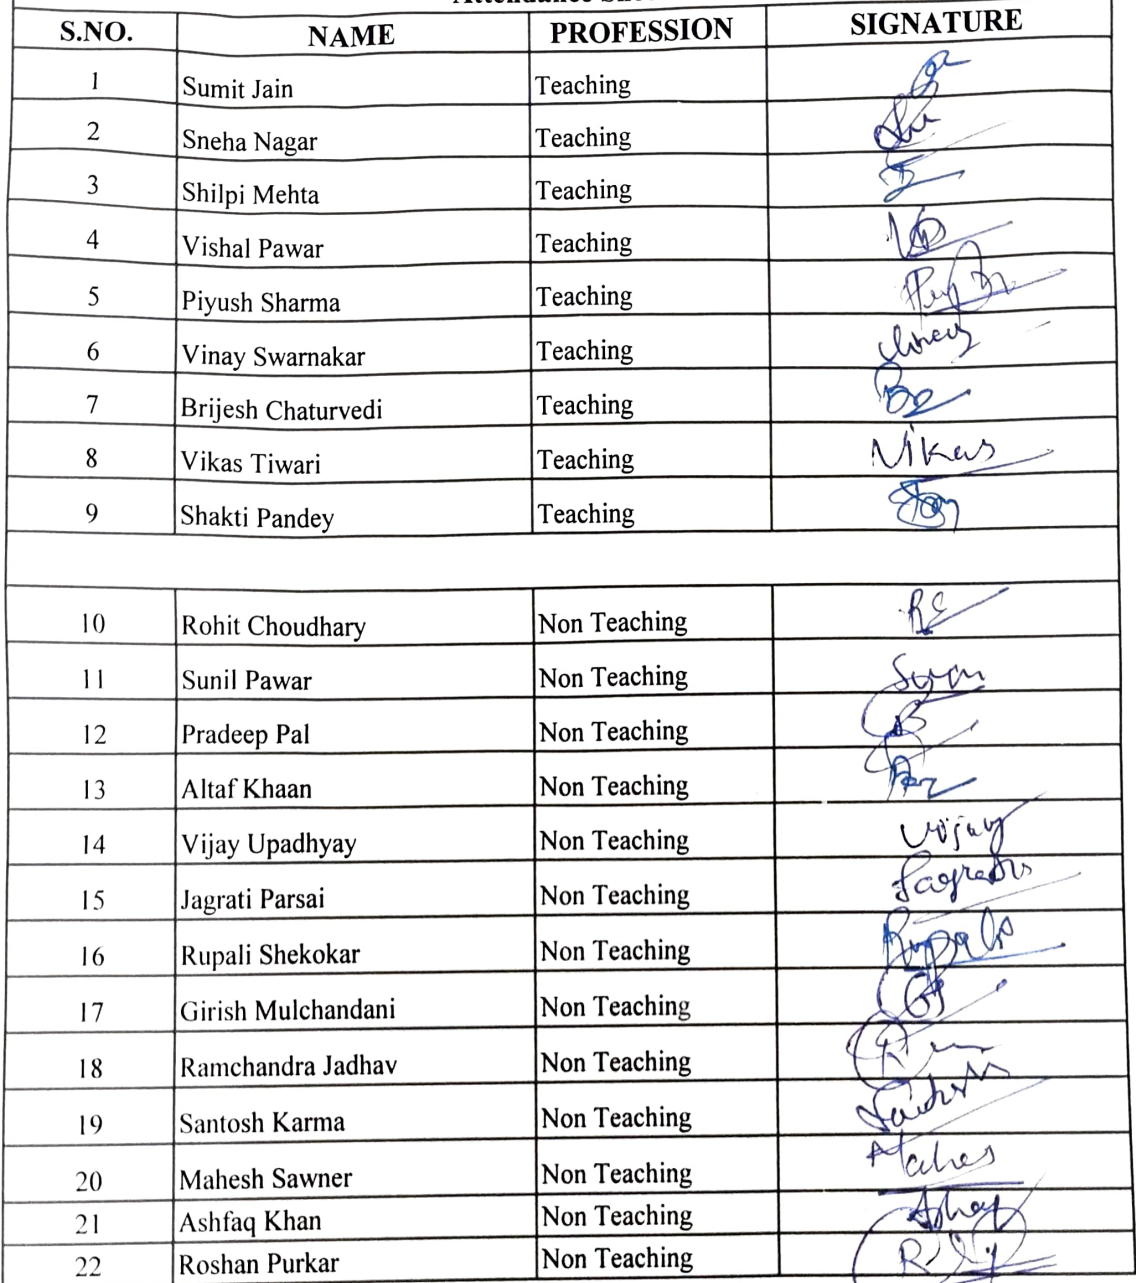 Attendance Sheet
S.NO. NAME PROFESSION SIGNATURE
1 Sumit Jain Teaching
2 Sneha Nagar Teaching
3 Shilpi Mehta Teaching
4 Vishal Pawar Teaching
5 Piyush Sharma Teaching
6 Vinay Swarnakar Teaching
7 Brijesh Chaturvedi Teaching
8 Vikas Tiwari Teaching Vikas
9 Shakti Pandey Teaching
10 Rohit Choudhary Non Teaching RC
11 Sunil Pawar Non Teaching
12 Pradeep Pal Non Teaching
13 Altaf Khaan Non Teaching
14 Vijay Upadhyay Non Teaching Vijay
15 Jagrati Parsai Non Teaching Jagrati
16 Rupali Shekokar Non Teaching Rupali
17 Girish Mulchandani Non Teaching
18 Ramchandra Jadhav Non Teaching
19 Santosh Karma Non Teaching
20 Mahesh Sawner Non Teaching Mahes
21 Ashfaq Khan Non Teaching
22 Roshan Purkar Non Teaching